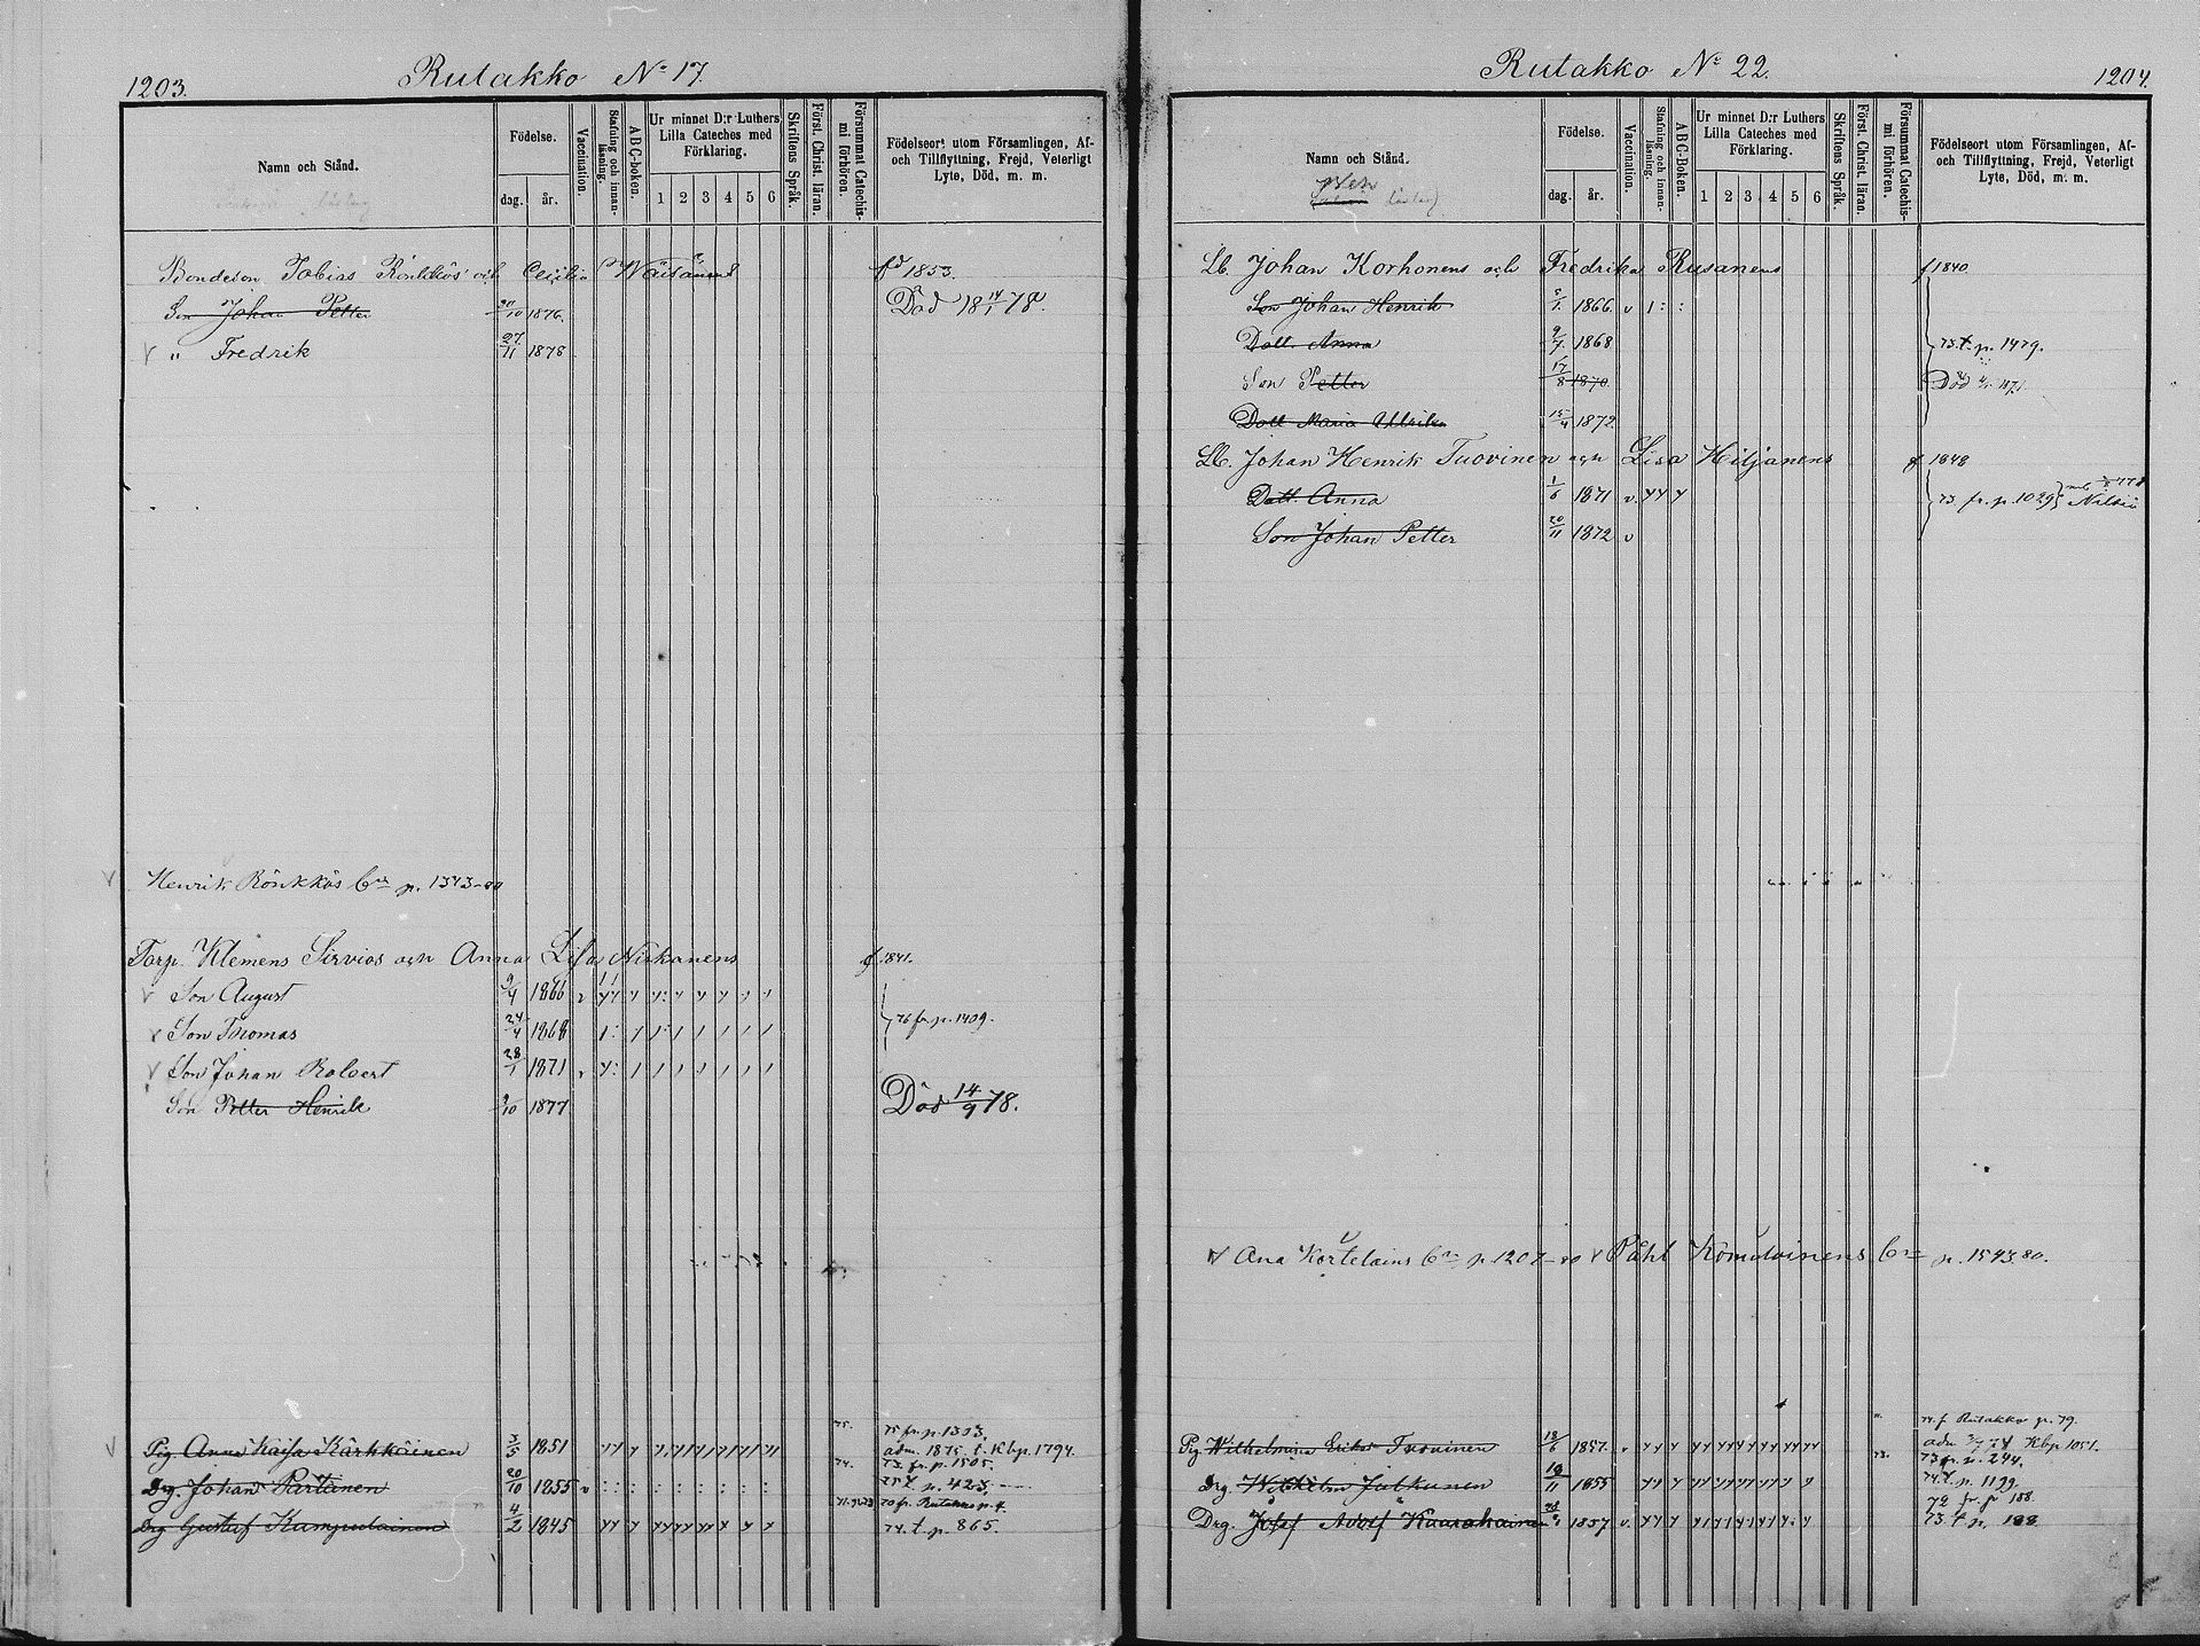 1203.
Rutakko No 17.
Namn och Stånd.
Födelse.
dag.
år.
Vaccination.
Stafning och innan-läsning.
ABC-boken.
Ur minnet D:r Luthers
Lilla Cateches med
Förklaring.
1 2 3 4 5 6
Skriftens Språk.
Först. Christ. läran.
Försummat Catechis-mi förhören.
Födelseort utom Församlingen, Af-
och Tillflyttning, Frejd, Veterligt
Lyte, Död, m. m.
Bondeson Tobias Rönkkös och Cecilia Wäisänens fd 1853.
Son Johan Petter 1876. Död 18 14/1 78.
" Fredrik 27/11 1878
Henrik Rönkkös p. 1343-80
Torp. Klemens Sirviös och Anna Lisa Niskanens f 1841.
Son August 9/4 1866 v
Son Thomas 24/4 1868 76 fr. p. 1409.
Son Johan Robert 28/1 1871
Son Petter Henrik 9/10 1877 Död 14/9 78.
75. 75 fr. p. 1303.
Pig. Anna Kaisa Kärkkäinen 3/5 1851 adm. 1875 t. Kbp. 1794.
74. 73. fr. p. 1505.
Drg. Johan Partanen 20/10 1855 v 75 t. p. 423.
70 fr. Rutakko p. 4.
Drg Gustaf Kumpulainen 4/2 1845 74. t. p. 865.
Rutakko No 22.
1204.
Namn och Stånd.
Födelse.
dag.
år.
Vaccination.
Stafning och innan-läsning.
ABC-Boken.
Ur minnet D:r Luthers
Lilla Cateches med
Förklaring.
1 2 3 4 5 6
Skriftens Språk.
Först. Christ. läran.
Försummat Catechis-mi förhören.
Födelseort utom Församlingen, Af-
och Tillflyttning, Frejd, Veterligt
Lyte, Död, m. m.
Lb. Johan Korhonens och Fredrika Rusanens f 1840
Son Johan Henrik 1866. v
Dott. Anna 9/7 1868 73. t. p. 1479.
Son Petter 17/8 1870. Död
Dott Maria Ullrika 15/4 1872.
Lb. Johan Henrik Tuovinen och Lisa Hiljanens f 1848
Dott. Anna 1/6 1871 v. 73 fr. p. 1029 Nilsiä
Son Johan Petter 20/11 1872 v
Ana Kortelains p. 1207-80 Påhl Komulainens p. 1543.80.
74. f Rutakko p. 79.
Pig Wilhelmina Erika Tuovinen 18/6 1857. adm Kbp 1051.
73. 73 fr. p. 244.
Drg. Wilhelm Julkunen 19/11 1855 74. t. p. 1199.
72 fr. p. 188.
Drg. Josef Adolf Kaarakainen 1857 v. 73. t p. 188